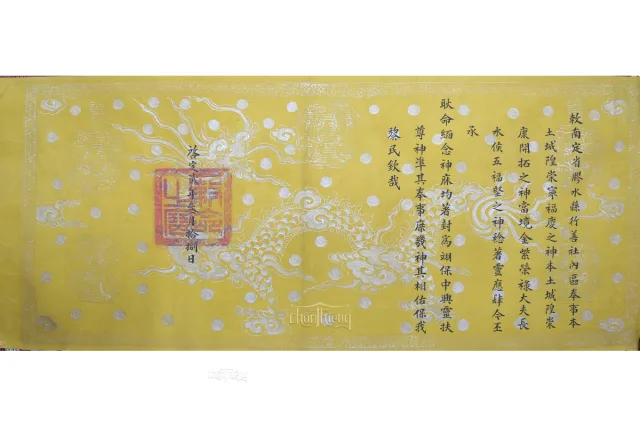 敕南定省膠水縣行善社內區奉事本
土城隍崇寧福慶之神本土城隍崇
康開拓之神當境金紫榮祿大夫長
水侯五福堅之神稔著靈應肆今丕
承
耿命緬念神庥均著封為翊保中興靈扶
尊神準其奉事庶幾神其相佑保我
黎民欽哉
啓定貳年叄月拾捌日
敕命之寶
chonthieng